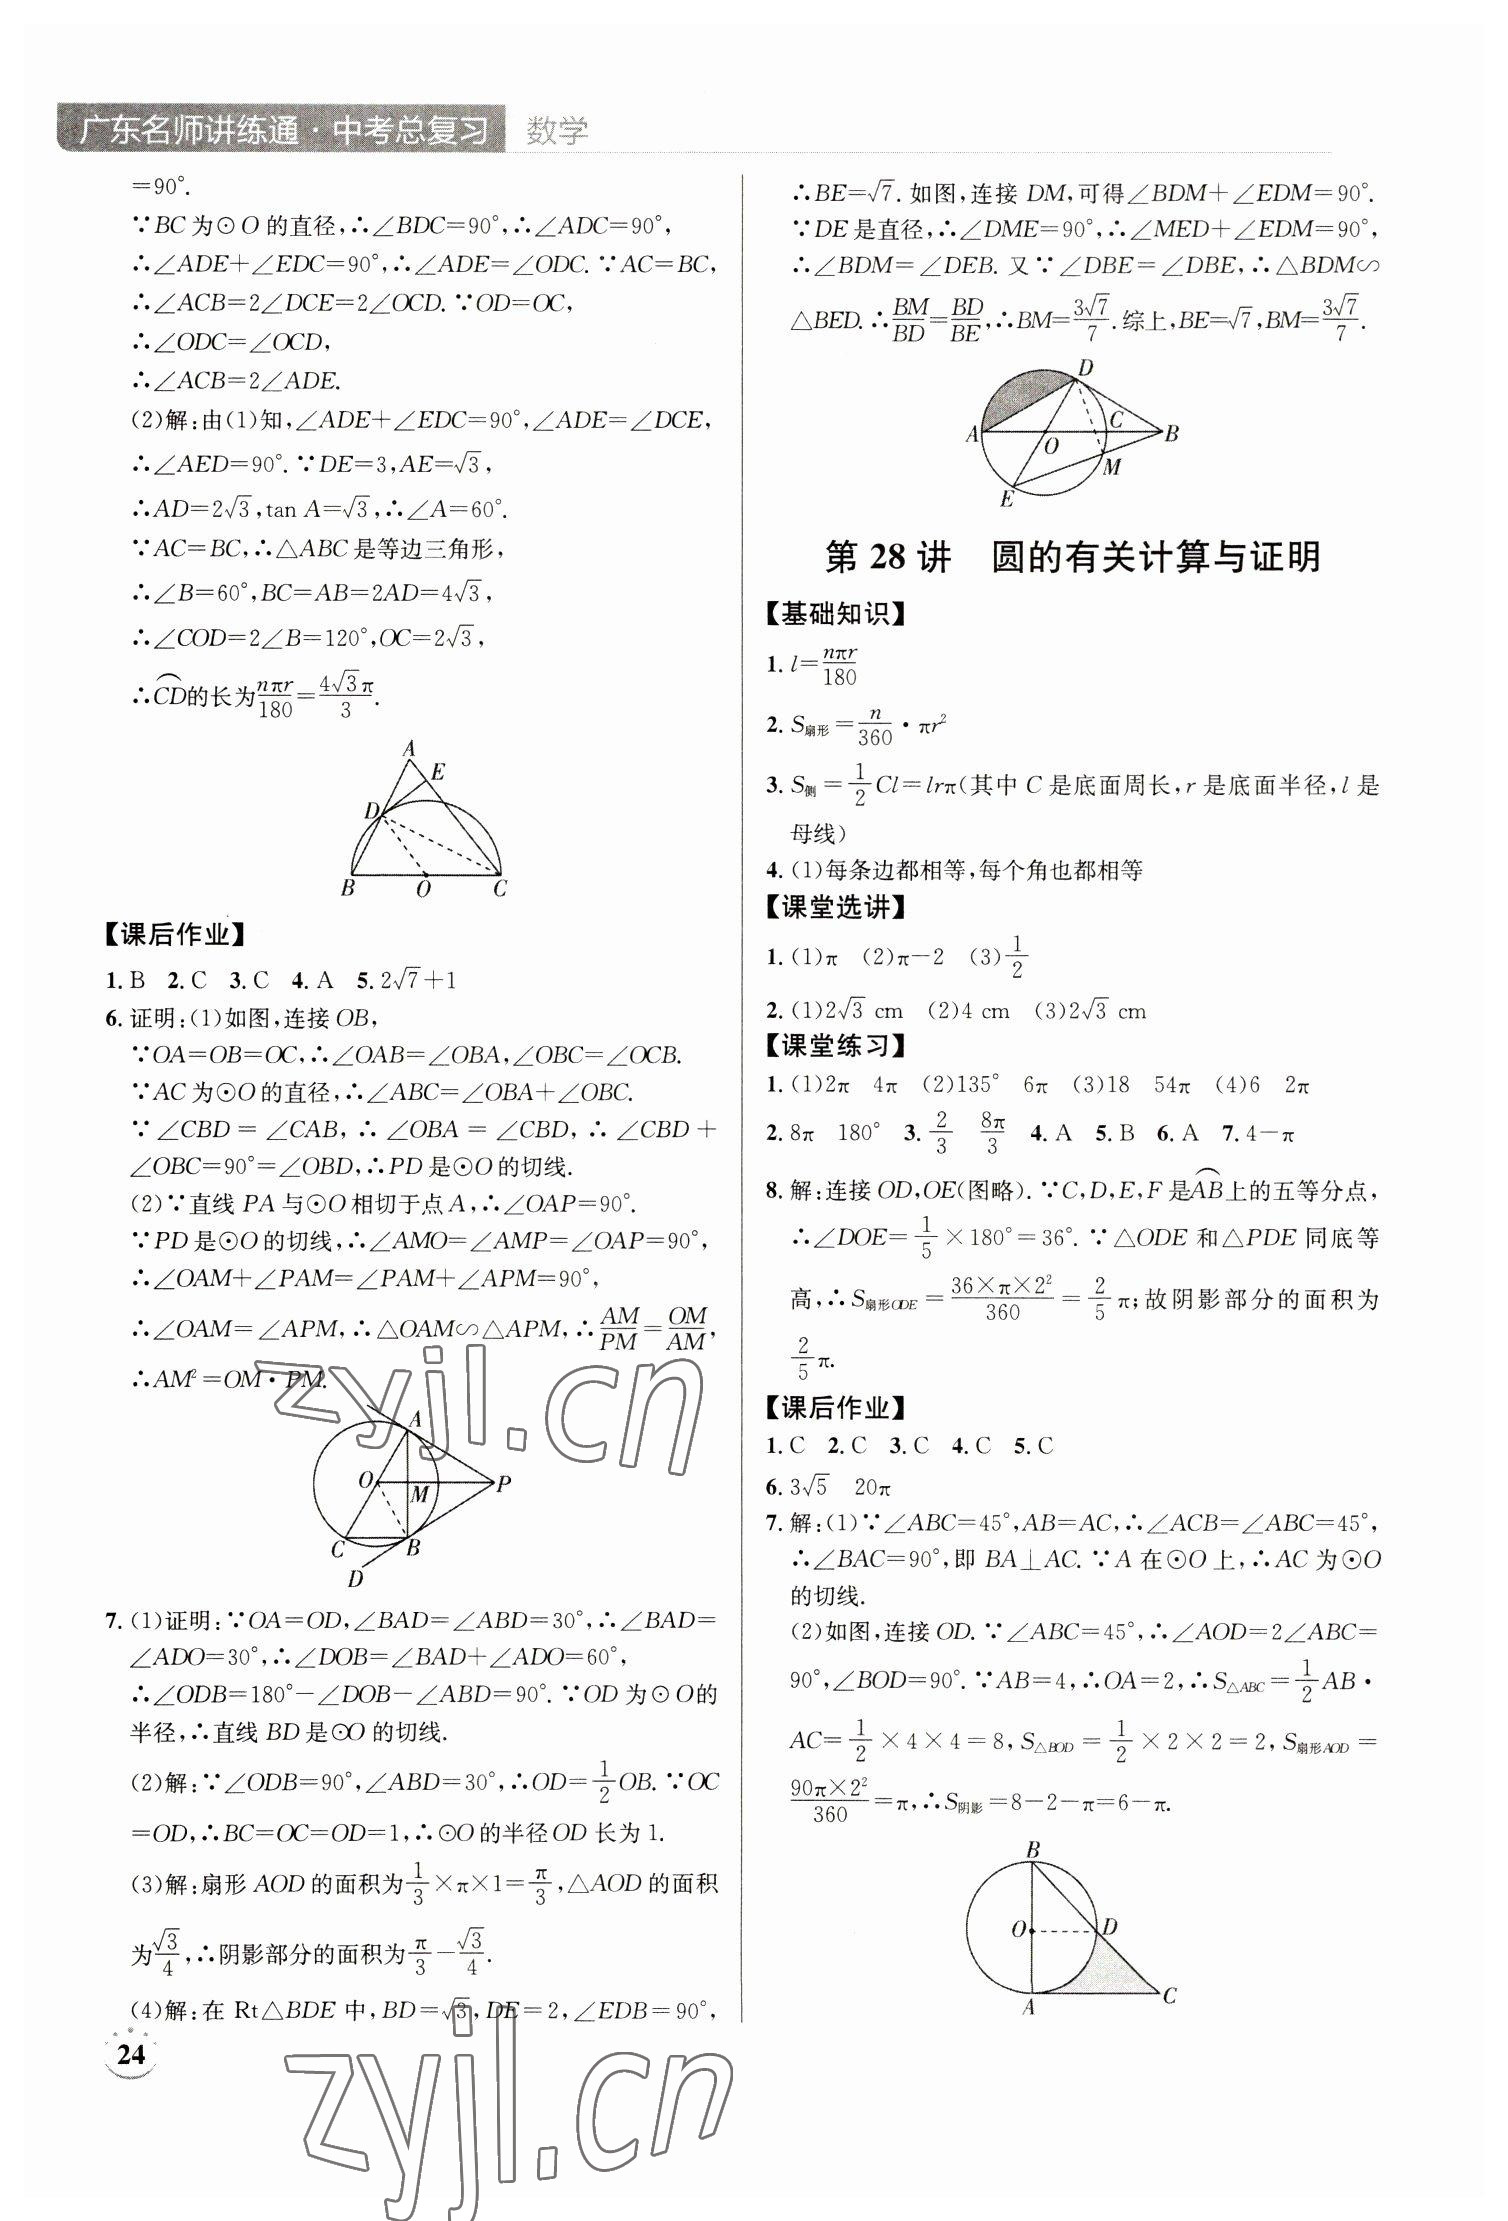 广东名师讲练通·中考总复习 数学
=90°.
∵BC为⊙O的直径,∴∠BDC=90°,∴∠ADC=90°,
∴∠ADE+∠EDC=90°,∴∠ADE=∠ODC. ∵AC=BC,
∴∠ACB=2∠DCE=2∠OCD. ∵OD=OC,
∴∠ODC=∠OCD,
∴∠ACB=2∠ADE.
(2)解:由(1)知,∠ADE+∠EDC=90°,∠ADE=∠DCE,
∴∠AED=90°. ∵DE=3,AE=√3,
∴AD=2√3,tan A=√3,∴∠A=60°.
∵AC=BC,∴△ABC是等边三角形,
∴∠B=60°,BC=AB=2AD=4√3,
∴∠COD=2∠B=120°,OC=2√3,
∴⌒CD的长为nπr/180=4√3π/3.
A
E
D
B O C
【课后作业】
1. B 2. C 3. C 4. A 5. 2√7+1
6. 证明:(1)如图,连接OB,
∵OA=OB=OC,∴∠OAB=∠OBA,∠OBC=∠OCB.
∵AC为⊙O的直径,∴∠ABC=∠OBA+∠OBC.
∵∠CBD=∠CAB,∴∠OBA=∠CBD,∴∠CBD+
∠OBC=90°=∠OBD,∴PD是⊙O的切线.
(2)∵直线PA与⊙O相切于点A,∴∠OAP=90°.
∵PD是⊙O的切线,∴∠AMO=∠AMP=∠OAP=90°,
∴∠OAM+∠PAM=∠PAM+∠APM=90°,
∴∠OAM=∠APM,∴△OAM∽△APM,∴AM/PM=OM/AM,
∴AM²=OM·PM.
A
O M P
C B
D
7. (1)证明:∵OA=OD,∠BAD=∠ABD=30°,∴∠BAD=
∠ADO=30°,∴∠DOB=∠BAD+∠ADO=60°,
∴∠ODB=180°-∠DOB-∠ABD=90°. ∵OD为⊙O的
半径,∴直线BD是⊙O的切线.
(2)解:∵∠ODB=90°,∠ABD=30°,∴OD=1/2OB. ∵OC
=OD,∴BC=OC=OD=1,∴⊙O的半径OD长为1.
(3)解:扇形AOD的面积为1/3×π×1=π/3,△AOD的面积
为√3/4,∴阴影部分的面积为π/3-√3/4.
(4)解:在Rt△BDE中,BD=√3,DE=2,∠EDB=90°,
24
∴BE=√7. 如图,连接DM,可得∠BDM+∠EDM=90°.
∵DE是直径,∴∠DME=90°,∴∠MED+∠EDM=90°,
∴∠BDM=∠DEB. 又∵∠DBE=∠DBE,∴△BDM∽
△BED. ∴BM/BD=BD/BE,∴BM=3√7/7. 综上,BE=√7,BM=3√7/7.
D
C
A O B
M
E
第28讲 圆的有关计算与证明
【基础知识】
1. l=nπr/180
2. S扇形=n/360·πr²
3. S侧=1/2Cl=lrπ(其中C是底面周长,r是底面半径,l是
母线)
4. (1)每条边都相等,每个角也都相等
【课堂选讲】
1. (1)π (2)π-2 (3)1/2
2. (1)2√3 cm (2)4 cm (3)2√3 cm
【课堂练习】
1. (1)2π 4π (2)135° 6π (3)18 54π (4)6 2π
2. 8π 180° 3. 2/3 8π/3 4. A 5. B 6. A 7. 4-π
8. 解:连接OD,OE(图略). ∵C,D,E,F是⌒AB上的五等分点,
∴∠DOE=1/5×180°=36°. ∵△ODE和△PDE同底等
高,∴S扇形ODE=36×π×2²/360=2/5π;故阴影部分的面积为
2/5π.
【课后作业】
1. C 2. C 3. C 4. C 5. C
6. 3√5 20π
7. 解:(1)∵∠ABC=45°,AB=AC,∴∠ACB=∠ABC=45°,
∴∠BAC=90°,即BA⊥AC. ∵A在⊙O上,∴AC为⊙O
的切线.
(2)如图,连接OD. ∵∠ABC=45°,∴∠AOD=2∠ABC=
90°,∠BOD=90°. ∵AB=4,∴OA=2,∴S△ABC=1/2AB·
AC=1/2×4×4=8,S△BOD=1/2×2×2=2,S扇形AOD=
90π×2²/360=π,∴S阴影=8-2-π=6-π.
B
O D
A C
zyjl.cn
zyjl.cn